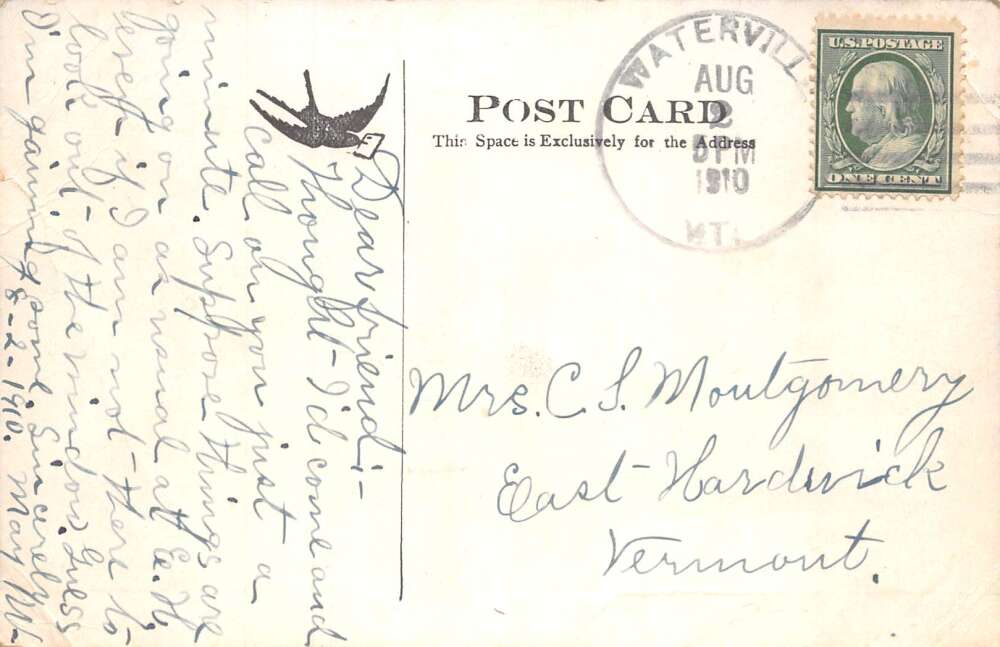 POST CARD
This Space is Exclusively for the Address
WATERVILL
AUG
2
5 PM
1910
VT.
U.S. POSTAGE
ONE CENT
Dear friend:-
Thought I'd come and
call on you just a
minute. Suppose things are
going on as usual at E. H.
even if I am not there to
look out of the window. Guess
I'm gaining some. Sincerely
8-2-1910. May W.
Mrs. C. S. Montgomery
East Hardwick
Vermont.